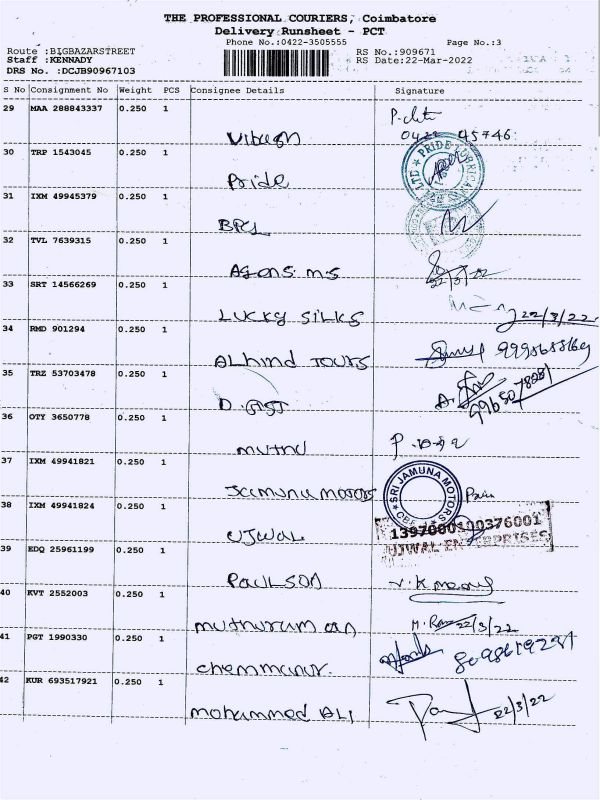 THE PROFESSIONAL COURIERS, Coimbatore
Delivery Runsheet - PCT
Phone No.:0422-3505555
Page No.:3
Route :BIGBAZARSTREET
RS No.:909671
Staff :KENNADY
RS Date:22-Mar-2022
DRS No. :DCJB90967103
S No Consignment No Weight PCS Consignee Details Signature
29 MAA 288843337 0.250 1
30 TRP 1543045 0.250 1
Pride
PRIDE LUBRICAN LTD
31 IXM 49945379 0.250 1
BPCL
32 TVL 7639315 0.250 1
Agens m.s 22/3/22
33 SRT 14566269 0.250 1
Lucky Silks 22/3/22
34 RMD 901294 0.250 1
ALhind Tours
35 TRZ 53703478 0.250 1
D. GST
36 OTY 3650778 0.250 1
muthu
37 IXM 49941821 0.250 1
Jamuna motors
SRI JAMUNA MOTORS CBE
38 IXM 49941824 0.250 1
UJWAL
1397000100376001
UJWAL ENTERPRISES
39 EDQ 25961199 0.250 1
Paulson
40 KVT 2552003 0.250 1
22/3/22
41 PGT 1990330 0.250 1
chemmanur. 8098619291
42 KUR 693517921 0.250 1
mohammed ALi 22/3/22